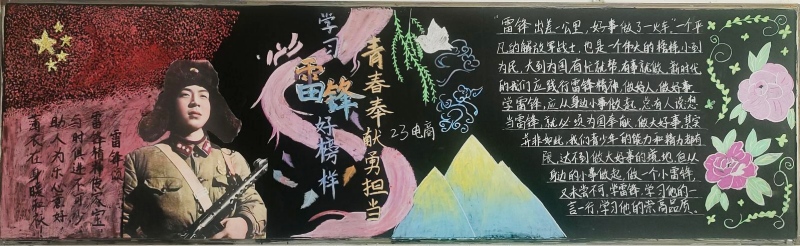 学习
雷锋
好榜样
青春奉献勇担当
23电商
雷锋颂
雷锋精神传家宝
与时俱进不可少
助人为乐心意好
"雷锋出差一公里,好事做了一火车,"一个平
凡的解放军战士,也是一个伟大的榜样,小到
为民,大到为国,有忙就帮,有事就做,新时代
的我们应践行雷锋精神,做好人,做好事,
学雷锋,应从身边小事做起,总有人说,想
当雷锋,就必须为国奉献,做大好事,其实
并非如此,我们青少年的能力和精力都有
限,达不到做大好事的境地,但从
身边的小事做起,做一个小雷锋,
又未尝不可,学雷锋,学习他的一
言一行,学习他的崇高品质。"